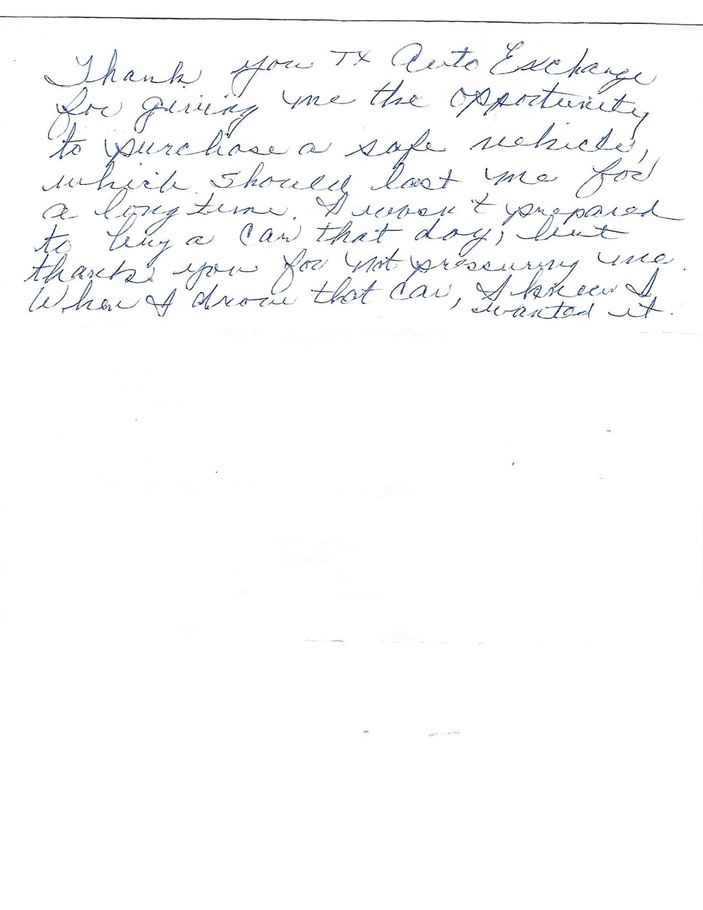 Thank you TX Auto Exchange
for giving me the opportunity
to purchase a safe vehicle,
which should last me for
a long time. I wasn't prepared
to buy a car that day, but
thank you for not pressuring me.
When I drove that car, I knew I
wanted it.